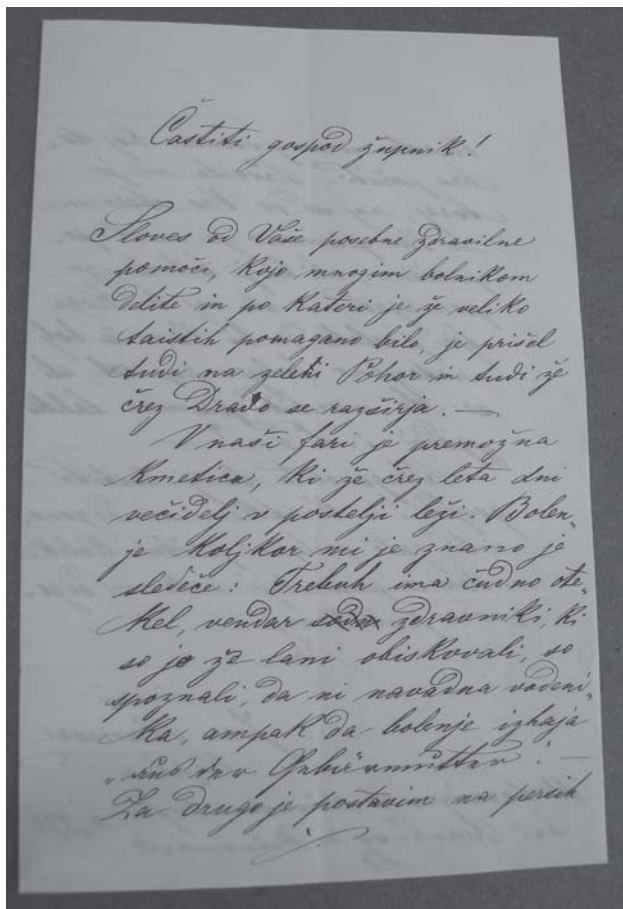 Častiti gospod župnik!
Sloves od Vaše posebne zdravilne
pomoči, kojo mnogim bolnikom
delite in po kateri je že veliko
taistih pomagano bilo, je prišel
tudi na zeleni Pohor in tudi že
črez Dravo se razširja. —
V naši fari je premožna
kmetica, ki že črez leta dni
večidelj v postelji leži. Bolen-
je koljkor mi je znano je
sledeče: Trebuh ima čudno ote-
kel, vendar zdravniki, ki
so jo že lani obiskovali, so
spoznali, da ni navadna vodeni-
ka, ampak da bolenje izhaja
"aus der Gebärmutter". —
Za drugo je postavim na persih